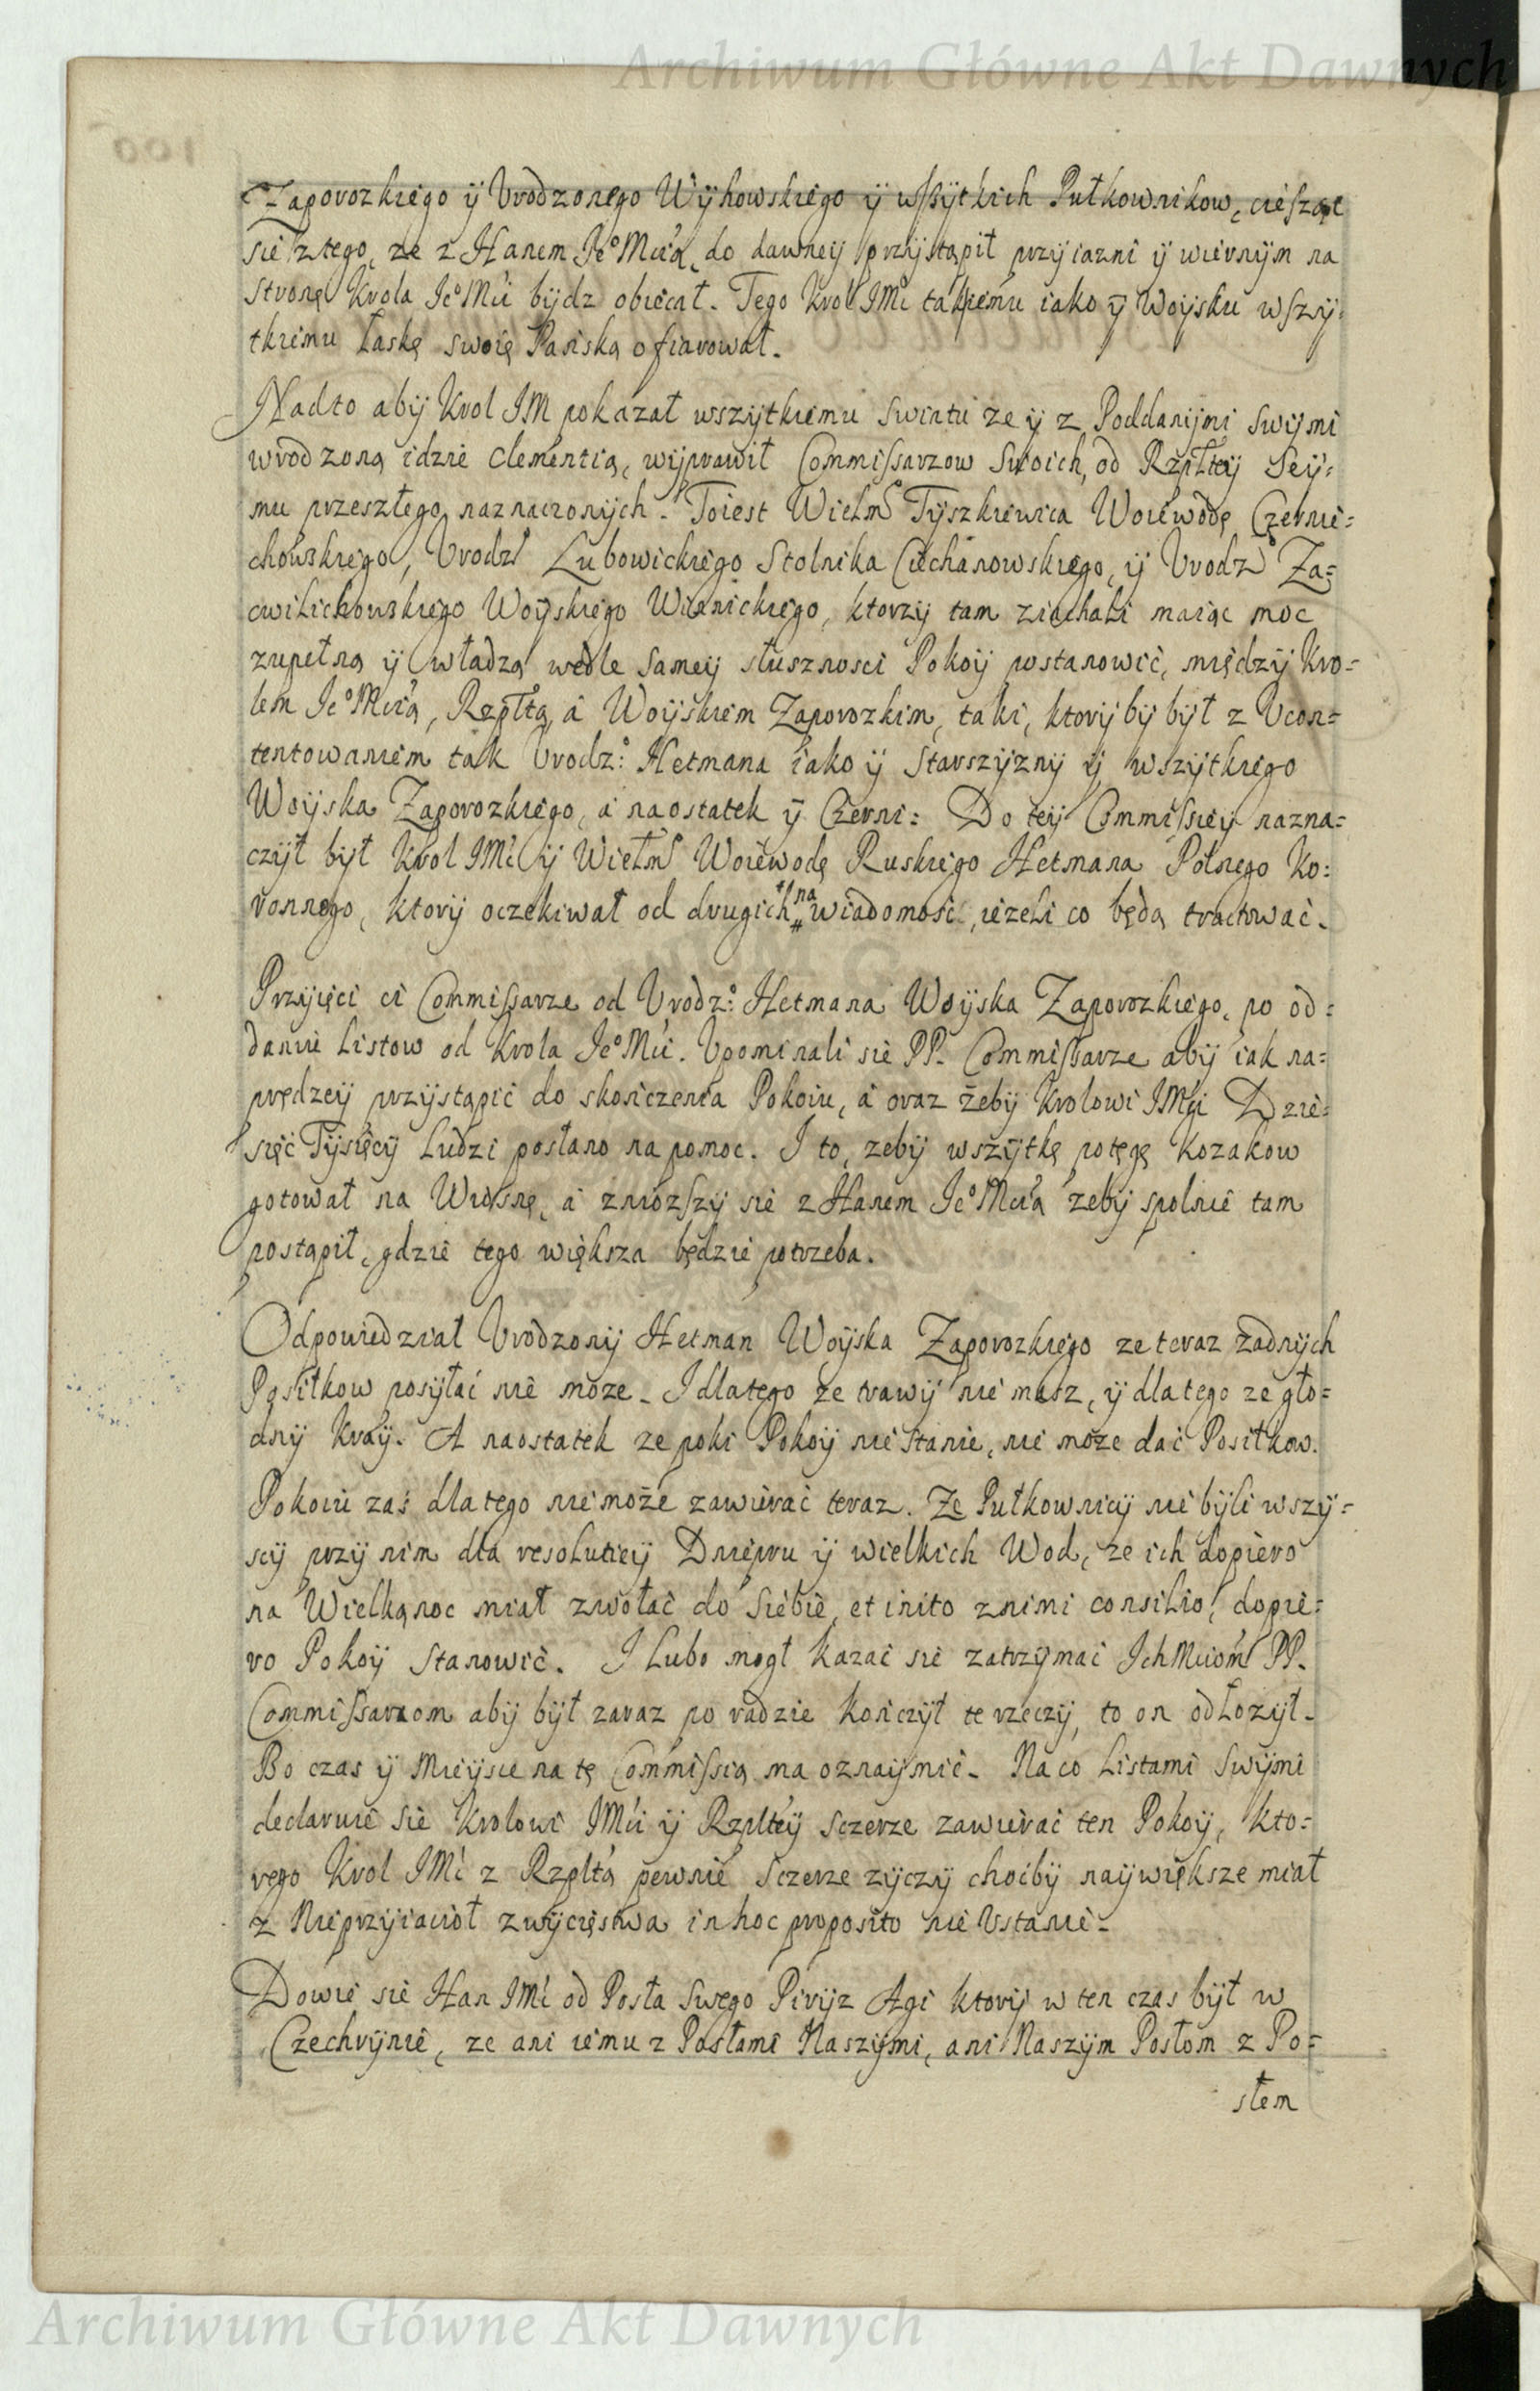 Archiwum Główne Akt Dawnych
100
Zaporozkiego ÿ Vrodzonego Wÿhowskiego ÿ wszÿtkich Pułkownikow, ciesząc
sie z tego, ze z Hanem Je° Mcią, do dawneÿ przÿstąpił przÿiazni ÿ wiernÿm na
stronę Krola Je° Mci bÿdz obiecał. Tego Krol JMć takiemu iako ÿ Woÿsku wszÿ=
tkiemu łaskę swoię Pańską ofiarował.
Nadto abÿ Krol JM pokazał wszÿtkiemu swiatu ze ÿ z Poddanÿmi swÿmi
wrodzoną idzie clementią, wÿprawił Commissarzow swoich, od Rzplteÿ Seÿ=
mu przeszłego naznaczonÿch. Toiest Wielm° Tÿszkiewica Woiewodę Czernie=
chowskiego, Vrodz° Lubowickiego Stolnika Ciechanowskiego, ÿ Vrodz° Za=
cwilichowskiego Woÿskiego Winnickiego, ktorzÿ tam ziachali maiąc moc
zupełną ÿ władzą wedle sameÿ słusznosci Pokoÿ postanowić, międzÿ Kro=
lem Je° Mcią, Rzpltą, á Woÿskiem Zaporozkim, taki, ktorÿ bÿ bÿł z Vcon=
tentowaniem tak Vrodz° Hetmana iako ÿ Starszÿznÿ ÿ wszÿtkiego
Woÿska Zaporozkiego, á naostatek ÿ Czerni: Do teÿ Commissieÿ nazna=
czÿł bÿł Krol JMć ÿ Wielm° Woiewodę Ruskiego Hetmana Polnego Ko=
ronnego, ktorÿ oczekiwał od drugich na wiadomosć, ieżeli co będą tractować.
Przÿięci ci Commissarze od Vrodz° Hetmana Woÿska Zaporozkiego, po od=
daniu Listow od Krola Je° Mci. Vpominali sie PP. Commissarze abÿ iak na=
prędzeÿ przÿstąpić do skończenia Pokoiu, á oraz żebÿ Krolowi JMci Dzie=
sięć Tÿsięcÿ Ludzi posłano na pomoc. I to, zebÿ wszÿtkę potęgę Kozakow
gotował na Wiosnę, á zniozszÿ sie z Hanem Je° Mcią zebÿ spolnie tam
postąpił, gdzie tego większa będzie potrzeba.
Odpowiedział Vrodzonÿ Hetman Woÿska Zaporozkiego ze teraz żadnÿch
Posiłkow posÿłać nie moze. I dlatego ze trawÿ nie masz, ÿ dlatego ze gło=
dnÿ Kraÿ. A naostatek ze poki Pokoÿ nie stanie, nie może dać Posiłkow.
Pokoiu zaś dlatego nie może zawierać teraz. Ze Pułkownicÿ nie bÿli wszÿ=
scÿ przÿ nim dla resolutieÿ Dniepru ÿ wielkich Wod, ze ich dopiero
na Wielkąnoc miał zwołać do siebie, et inito z nimi consilio, dopie=
ro Pokoÿ stanowić. I Lubo mogł kazać sie zatrzÿmać Ich Mciom PP.
Commissarzom abÿ bÿł zaraz po radzie kończÿł te rzeczÿ, to on odłozÿł.
Bo czas ÿ Mieÿsce na tę Commissią ma oznaÿmić. Na co Listami swÿmi
declaruie sie Krolowi JMci ÿ Rzpltеÿ sczerze zawierać ten Pokoÿ, kto=
rego Krol JMć z Rzpltą pewnie sczerze zÿczÿ choćbÿ naÿwiększe miał
z Nieprzÿiacioł zwÿcięstwa in hoc proposito nie Vstanie.
Dowie sie Han JMć od Posła swego Pirÿz Agi ktorÿ w ten czas bÿł w
Czechrÿnie, ze ani iemu z Posłami Naszÿmi, ani Naszÿm Posłom z Po=
słem
Archiwum Główne Akt Dawnych